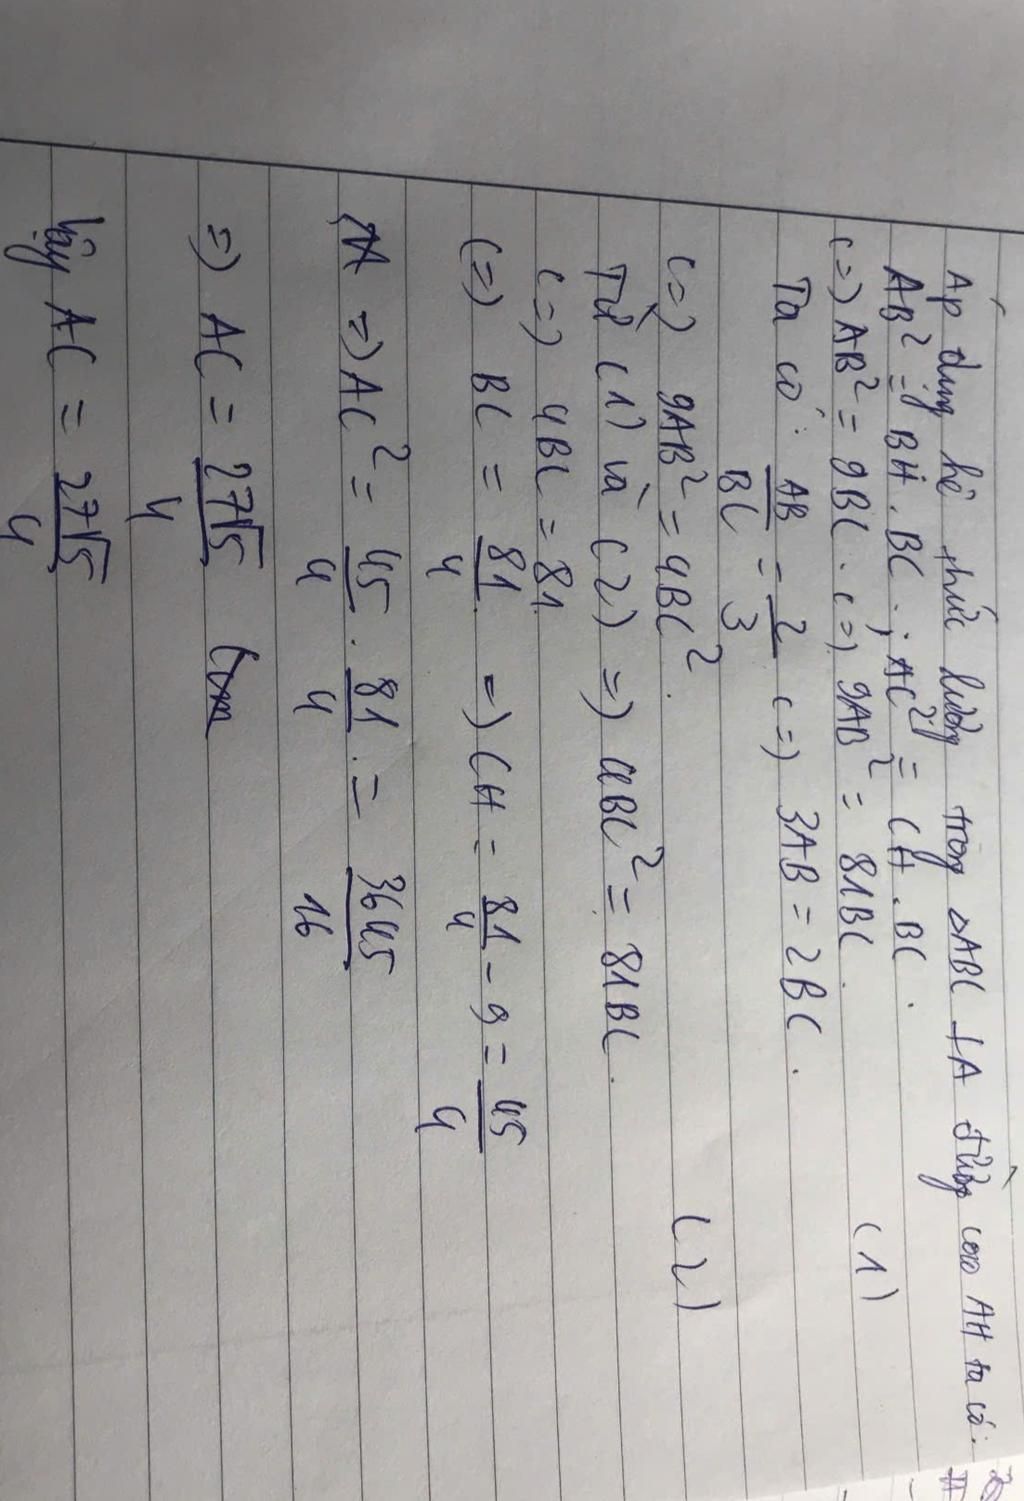 Áp dụng hệ thức lượng trong △ABC ⊥A đường cao AH ta có:
AB² = BH . BC ; AC² = CH . BC .
(=) AB² = 9BC . (=) 9AB² = 81BC . (1)
Ta có : AB/BC = 2/3 (=) 3AB = 2BC .
(=) 9AB² = 4BC² . (2)
Từ (1) và (2) =) 4BC² = 81BC .
(=) 4BC = 81
(=) BC = 81/4 =) CH = 81/4 - 9 = 45/4
=) AC² = 45/4 . 81/4 . = 3645/16
=) AC = 27√5/4 cm
Vậy AC = 27√5/4